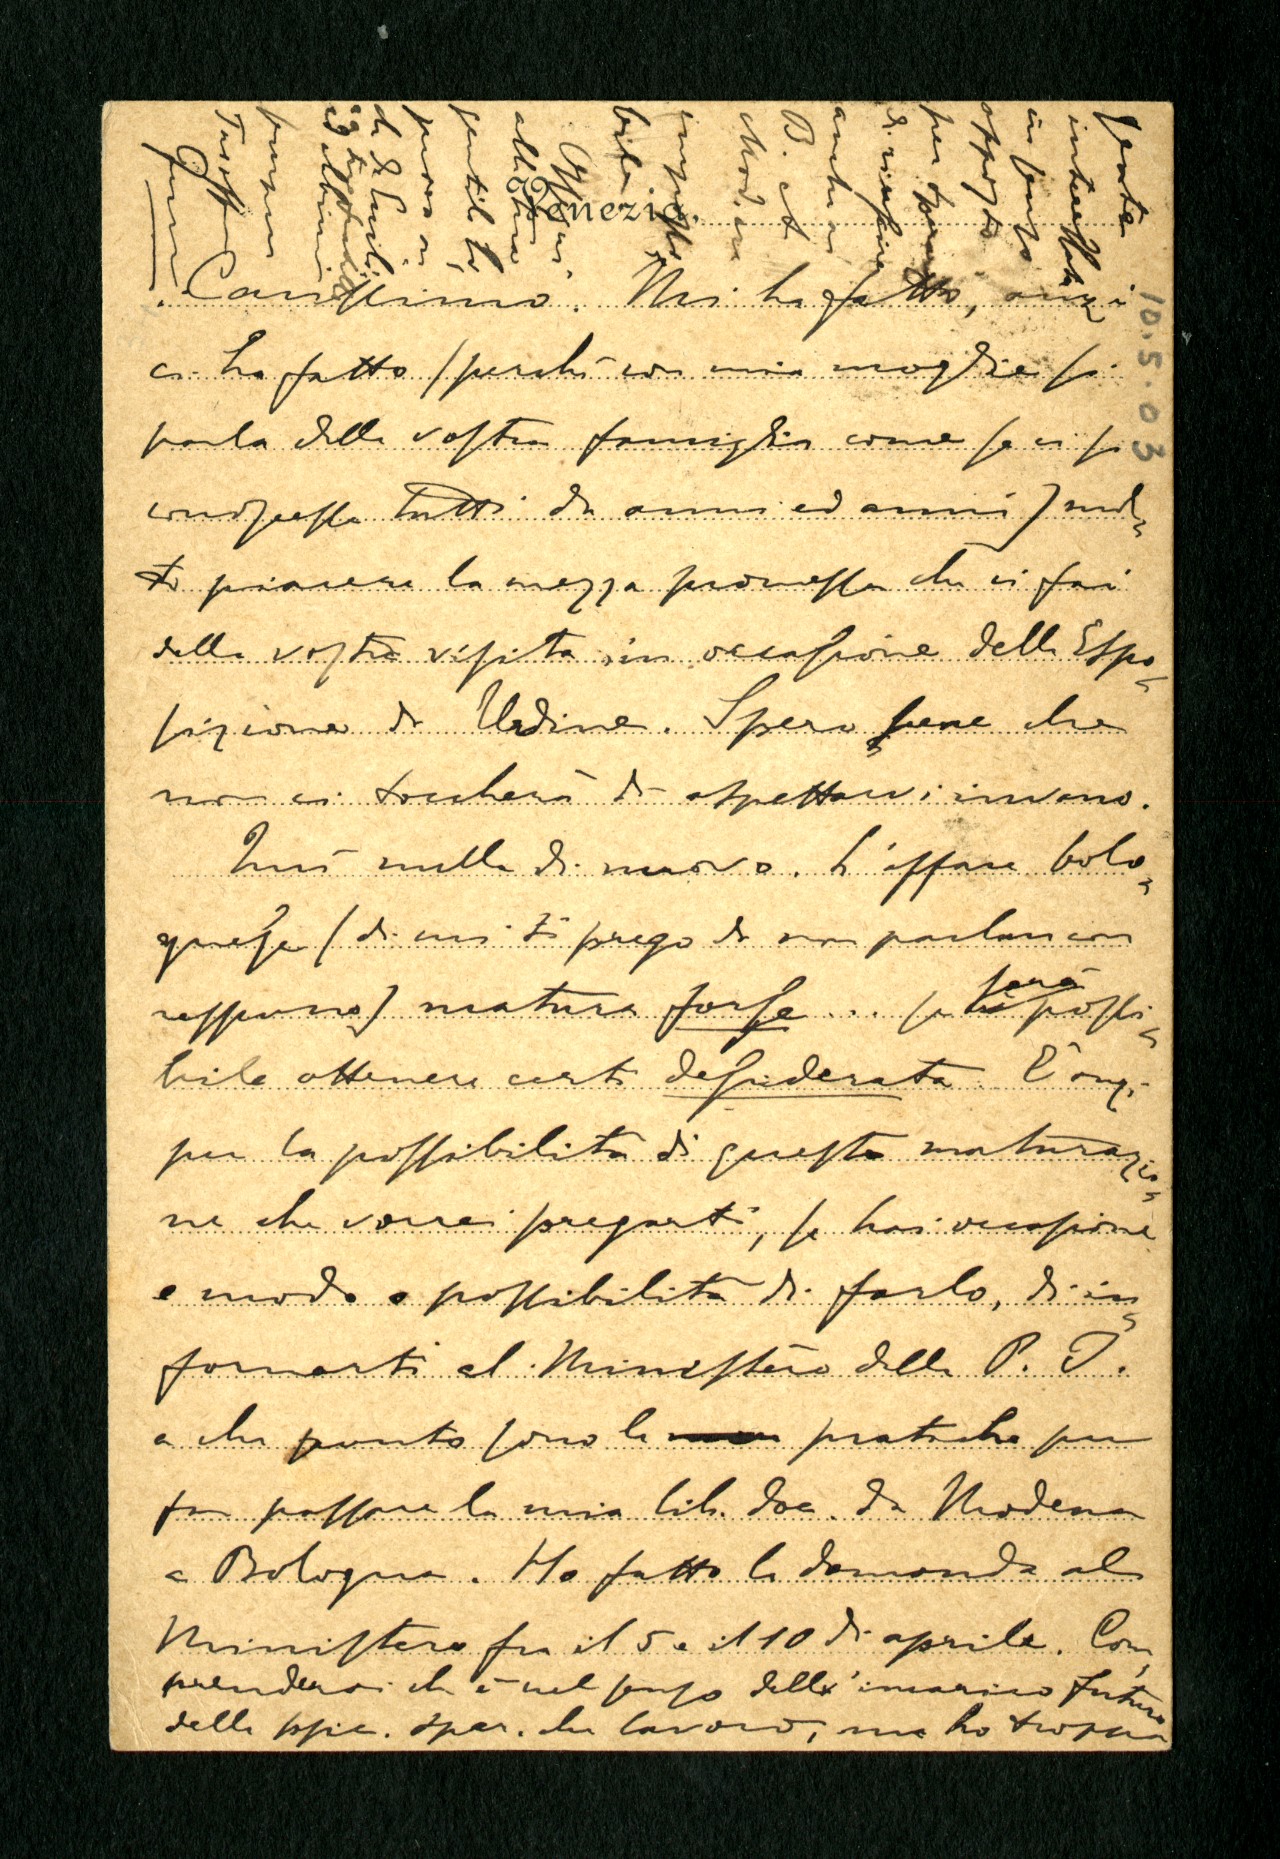 Venezia,
10.5.03
Carissimo. Mi ha fatto, anzi
ci ha fatto (perché con mia moglie si
parla della vostra famiglia come se ci si
conoscesse tutti da anni ed anni) mol-
to piacere la mezza promessa che ci fai
della vostra visita in occasione della Espo-
sizione di Udine. Spero bene che
non ci toccherà di aspettarvi invano.
Qui nulla di nuovo. L'affare bolo-
gnese (di cui ti prego di non parlare con
nessuno) matura forse... se sarà possi-
bile ottenere certi desiderata. È anzi
per la possibilità di questa maturazio-
ne che vorrei pregarti, se hai occasione
e modo e possibilità di farlo, di in-
formarti al Ministero della P. I.
a che punto sono le pratiche per
far passare la mia lib. doc. da Modena
a Bologna. Ho fatto la domanda al
Ministero fra il 5 e il 10 di aprile. Com-
prenderai che è nel senso dell'incarico futuro
della psic. sper. che lavoro, ma ho troppa
gente
interessata
in senso
opposto
per
di riuscire
anche a
B. A
Modena
impossi
bile
alla tua
gentile